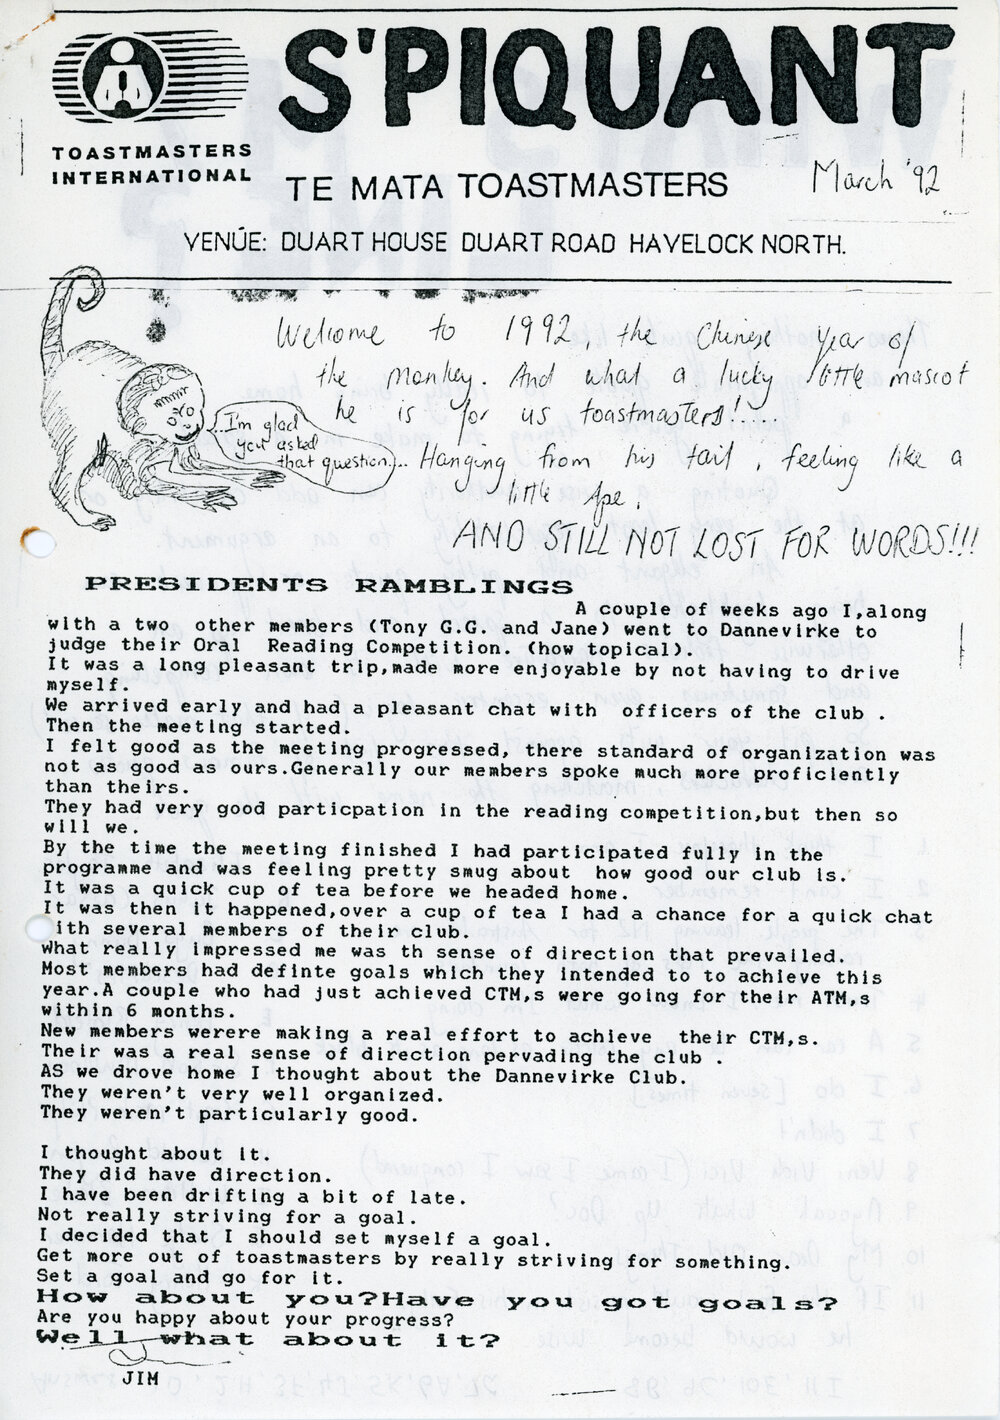 S'PIQUANT
TOASTMASTERS
INTERNATIONAL
TE MATA TOASTMASTERS
March '92
VENUE: DUART HOUSE DUART ROAD HAVELOCK NORTH.
Welcome to 1992 the Chinese Year of
the Monkey. And what a lucky little mascot
he is for us toastmasters!....
..I'm glad
you asked
that question...
Hanging from his tail, feeling like a
little Ape.
AND STILL NOT LOST FOR WORDS!!!
PRESIDENTS RAMBLINGS
A couple of weeks ago I,along
with a two other members (Tony G.G. and Jane) went to Dannevirke to
judge their Oral Reading Competition. (how topical).
It was a long pleasant trip,made more enjoyable by not having to drive
myself.
We arrived early and had a pleasant chat with officers of the club .
Then the meeting started.
I felt good as the meeting progressed, there standard of organization was
not as good as ours.Generally our members spoke much more proficiently
than theirs.
They had very good particpation in the reading competition,but then so
will we.
By the time the meeting finished I had participated fully in the
programme and was feeling pretty smug about how good our club is.
It was a quick cup of tea before we headed home.
It was then it happened,over a cup of tea I had a chance for a quick chat
ith several members of their club.
what really impressed me was th sense of direction that prevailed.
Most members had definte goals which they intended to to achieve this
year.A couple who had just achieved CTM,s were going for their ATM,s
within 6 months.
New members werere making a real effort to achieve their CTM,s.
Their was a real sense of direction pervading the club .
AS we drove home I thought about the Dannevirke Club.
They weren't very well organized.
They weren't particularly good.
I thought about it.
They did have direction.
I have been drifting a bit of late.
Not really striving for a goal.
I decided that I should set myself a goal.
Get more out of toastmasters by really striving for something.
Set a goal and go for it.
How about you?Have you got goals?
Are you happy about your progress?
Well what about it?
JIM